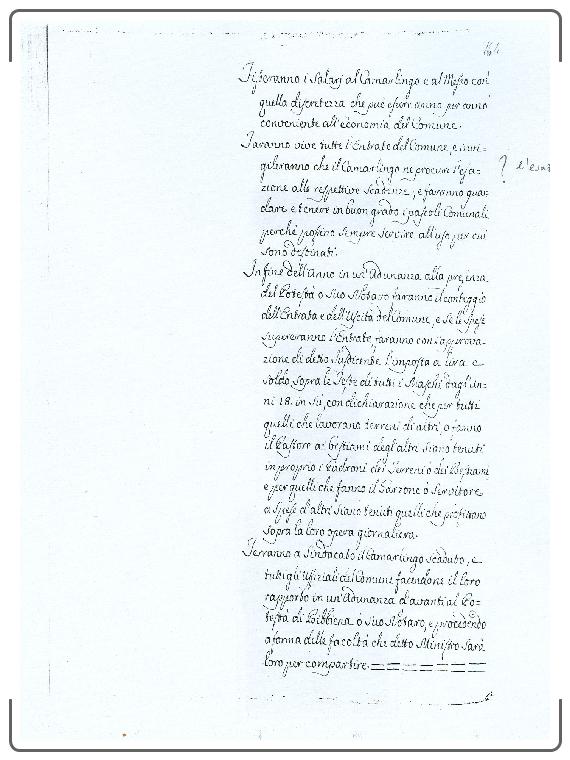 164
Tisseranno i Salarj al Camarlingo e al Messo con
quella discretezza che può essere anno per anno
conveniente all'economia del Comune.
Faranno vive tutte l'Entrate del Comune, e invi-
gileranno che il Camarlingo ne procuri l'esa-
? l'esaz
zione alle respettive Scadenze, e faranno guar
dare e tenere in buon grado i pascoli Comunali
perchè possino sempre servire all'uso per cui
sono destinati.
In fine dell'Anno in un'Adunanza alla presenza
del Potestà o Suo Notaro faranno il conteggio
dell'Entrata e dell'Uscita del Comune, e se le Spese
supereranno l'Entrate, faranno con l'approva-
zione di detto Jusdicente l'imposta a lira e
soldo sopra le Teste di tutti i Maschi dagl'an-
ni 18. in su, con dichiarazione che per tutti
quelli che lavorano terreni di altri, o fanno
il Pastore ai bestiami degl'altri siano tenuti
in proprio i Padroni dei Terreni o dei bestiami
e per quelli che fanno il Garzone o Servitore
a spese d'altri siano tenuti quelli che profittano
sopra la loro opera giornaliera.
Terranno a Sindacato il Camarlingo scaduto, e
tutti gli Ufiziali del Comune facendone il loro
rapporto in un'Adunanza d'avanti al Po=
testà di Bibbiena o suo Notaro, e procedendo
a forma delle facoltà che detto Ministro sarà
loro per compartire.